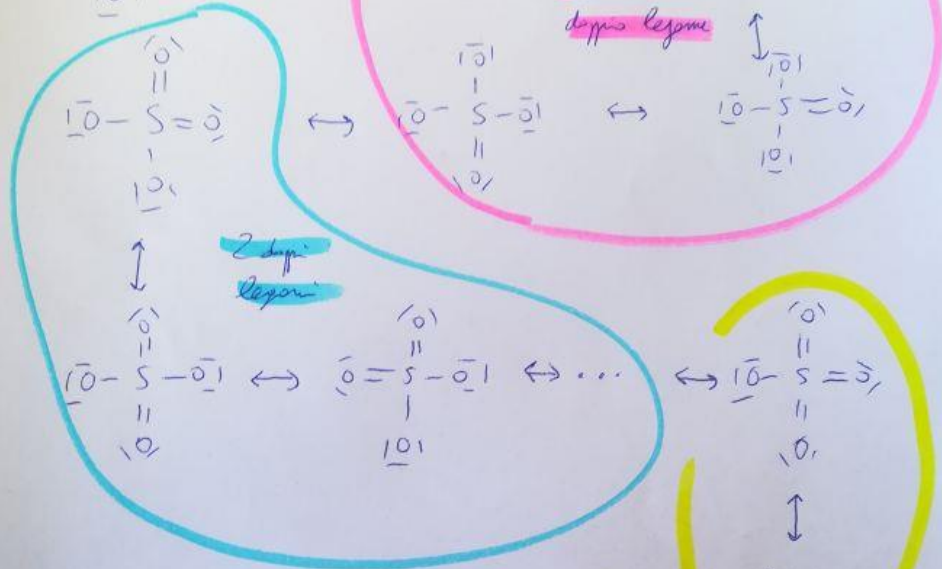 doppio legame
|O̅|
||
|O̅ – S = O
|
|O|
↔
|O̅|
|
|O̅ – S – O̅|
||
\O/
↔
|O̅|
|
|O̅ – S = O
|
|O|
2 doppi
legami
O
||
|O̅ – S – O̅|
||
\O/
↔
O
||
O = S – O̅|
|
|O|
↔ ...
↔
O
||
|O̅ – S = O
||
\O/